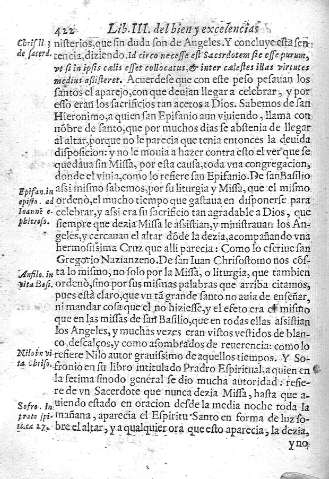 422 Lib. III. del bien y excelencias
Chris. li 3
de sacerd.
nisterios, que sin duda son de Angeles. Y concluye esta sen
tencia, diziendo. Id circo necesse est Sacerdotem sic esse purum,
vt si in ipsis cælis esset collocatus, & inter cælestes illas virtutes
medius assisteret. Acuerdese que con este peso pesauan los
santos el aparejo, con que deuian llegar a celebrar, y por
esso eran los sacrificios tan acetos a Dios. Sabemos de san
Hieronimo, a quien san Epifanio aun viuiendo, llama con
nõbre de santo, que por muchos dias se abstenia de llegar
al altar, porque no le parecia que tenia entonces la deuida
disposicion: y no le mouia a hazer contra esto el ver que se
quedaua sin Missa, por esta causa, toda vna congregacion,
donde el viuia, como lo refiere san Epifanio. De san Basilio
Epifan. in
epist. ad
Ioannē e-
assi mismo sabemos, por su liturgia y Missa, que el mismo
ordenò, el mucho tiempo que gastaua en disponerse para
celebrar, y assi era su sacrificio tan agradable a Dios, que
siempre que dezia Missa le assistian, y ministrauan los An
geles, y cercauan el altar dõde la dezia, acompañando vna
hermosissima Cruz que alli parecia: Como lo escriue san
Gregorio Nazianzeno. De san Iuan Chrisostomo nos cõs
Anfilo. in
vita Basi.
ta lo mismo, no solo por la Missa, o liturgia, que tambien
ordenò, sino por sus mismas palabras que arriba citamos,
pues està claro, que vn tã grande santo no auia de enseñar,
ni mandar cosa que el no hiziesse, y el efeto era el mismo
que en las missas de san Basilio, que en todas ellas assistian
los Angeles, y muchas vezes eran vistos vestidos de blan-
co, descalços, y como assombrados de reuerencia: como lo
Nilo in vi
ta Chriso.
refiere Nilo autor grauissimo de aquellos tiempos. Y So-
fronio en su libro intitulado Prado Espiritual, a quien en
la setima sinodo general se dio mucha autoridad: refie-
re de vn Sacerdote que nunca dezia Missa, hasta que a-
uiendo estado en oracion desde la media noche toda la
Sofro. in
prato spi-
mañana, aparecia el Espiritu Santo en forma de luz so-
bre el altar, y a qualquier ora que esto aparecia, la dezia,
y no